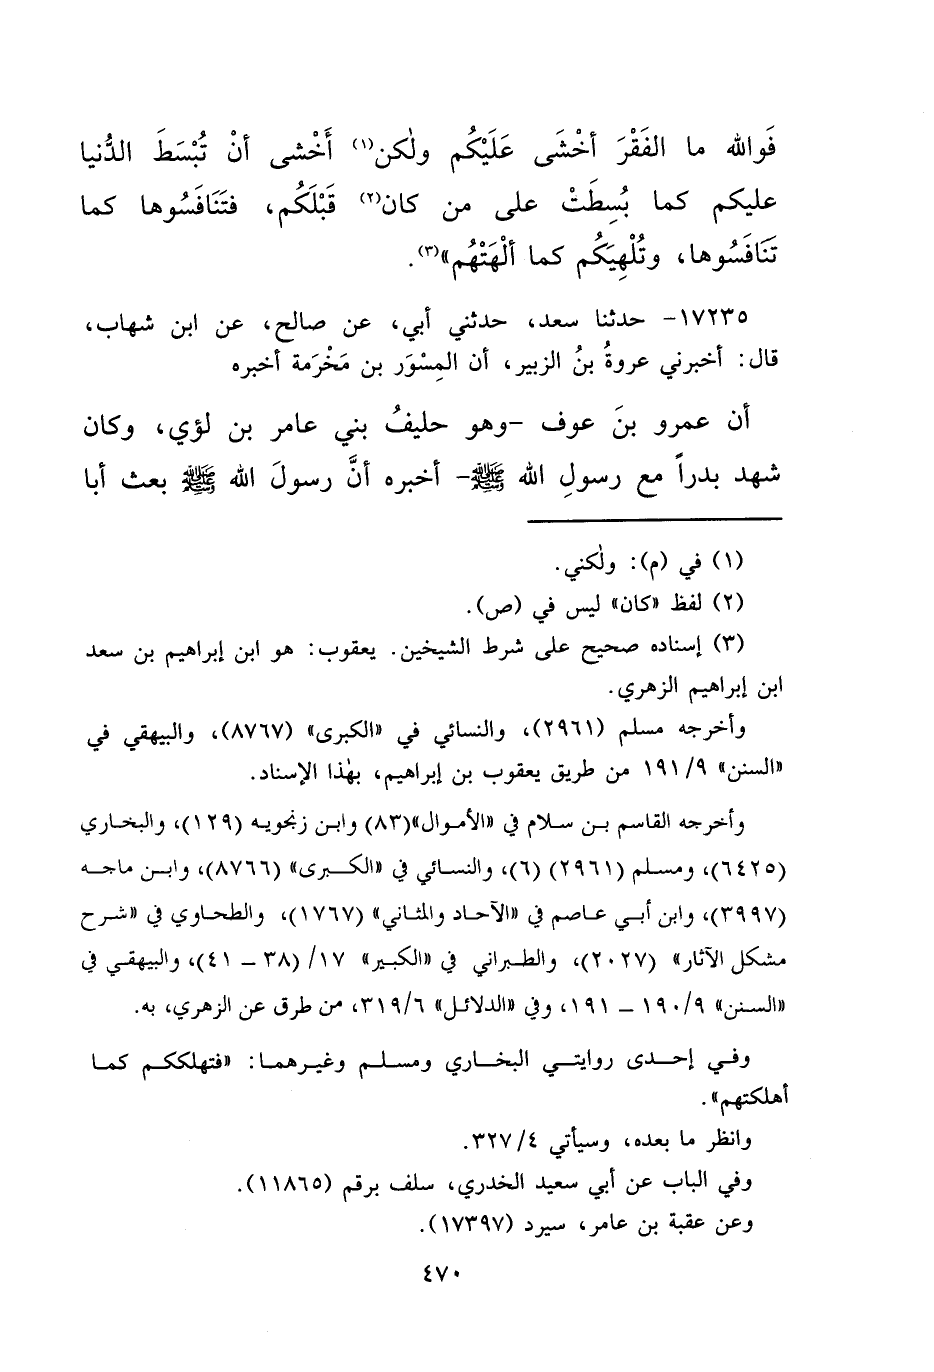 فَوالله ما الفَقْرَ أخْشَى عَلَيْكُم ولٰكن(١) أَخْشى أنْ تُبْسَطَ الدُّنيا
عليكم كما بُسِطَتْ على من كان(٢) قَبْلَكُم، فتَنَافَسُوها كما
تَنَافَسُوها، وتُلْهِيَكُم كما ألْهَتْهُم»(٣).
١٧٢٣٥- حدثنا سعد، حدثني أبي، عن صالح، عن ابن شهاب،
قال: أخبرني عروةُ بنُ الزبير، أن المِسْوَر بن مَخْرَمة أخبره
أن عمرو بنَ عوف -وهو حليفُ بني عامر بن لؤي، وكان
شهد بدراً مع رسولِ الله ﷺ- أخبره أنَّ رسولَ الله ﷺ بعث أبا
(١) في (م): ولٰكني.
(٢) لفظ «كان» ليس في (ص).
(٣) إسناده صحيح على شرط الشيخين. يعقوب: هو ابن إبراهيم بن سعد
ابن إبراهيم الزهري.
وأخرجه مسلم (٢٩٦١)، والنسائي في «الكبرى» (٨٧٦٧)، والبيهقي في
«السنن» ١٩١/٩ من طريق يعقوب بن إبراهيم، بهٰذا الإسناد.
وأخرجه القاسم بن سلام في «الأموال»(٨٣) وابن زنجويه (١٢٩)، والبخاري
(٦٤٢٥)، ومسلم (٢٩٦١) (٦)، والنسائي في «الكبرى» (٨٧٦٦)، وابن ماجه
(٣٩٩٧)، وابن أبي عاصم في «الآحاد والمثاني» (١٧٦٧)، والطحاوي في «شرح
مشكل الآثار» (٢٠٢٧)، والطبراني في «الكبير» ١٧/ (٣٨ - ٤١)، والبيهقي في
«السنن» ١٩٠/٩ - ١٩١، وفي «الدلائل» ٣١٩/٦، من طرق عن الزهري، به.
وفي إحدى روايتي البخاري ومسلم وغيرهما: «فتهلككم كما
أهلكتهم».
وانظر ما بعده، وسيأتي ٣٢٧/٤.
وفي الباب عن أبي سعيد الخدري، سلف برقم (١١٨٦٥).
وعن عقبة بن عامر، سيرد (١٧٣٩٧).
٤٧٠